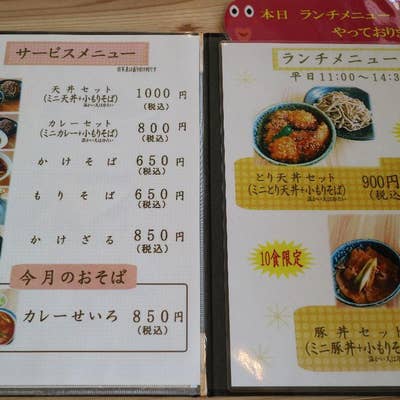 サービスメニュー
天丼セット 1000円
(ミニ天丼+小もりそば) (税込)
温かい又は冷たい
カレーセット 800円
(ミニカレー+小もりそば) (税込)
温かい又は冷たい
かけそば 650円
(税込)
もりそば 650円
(税込)
かけざる 850円
(税込)
今月のおそば
カレーせいろ 850円
(税込)
本日 ランチメニュー
やっており
ランチメニュー
平日11:00~14:3
とり天丼セット 900円
(ミニとり天丼+小もりそば) (税込
温かい又は冷たい
10食限定
豚丼セット
(ミニ豚丼+小もりそ
温かい又は冷たい